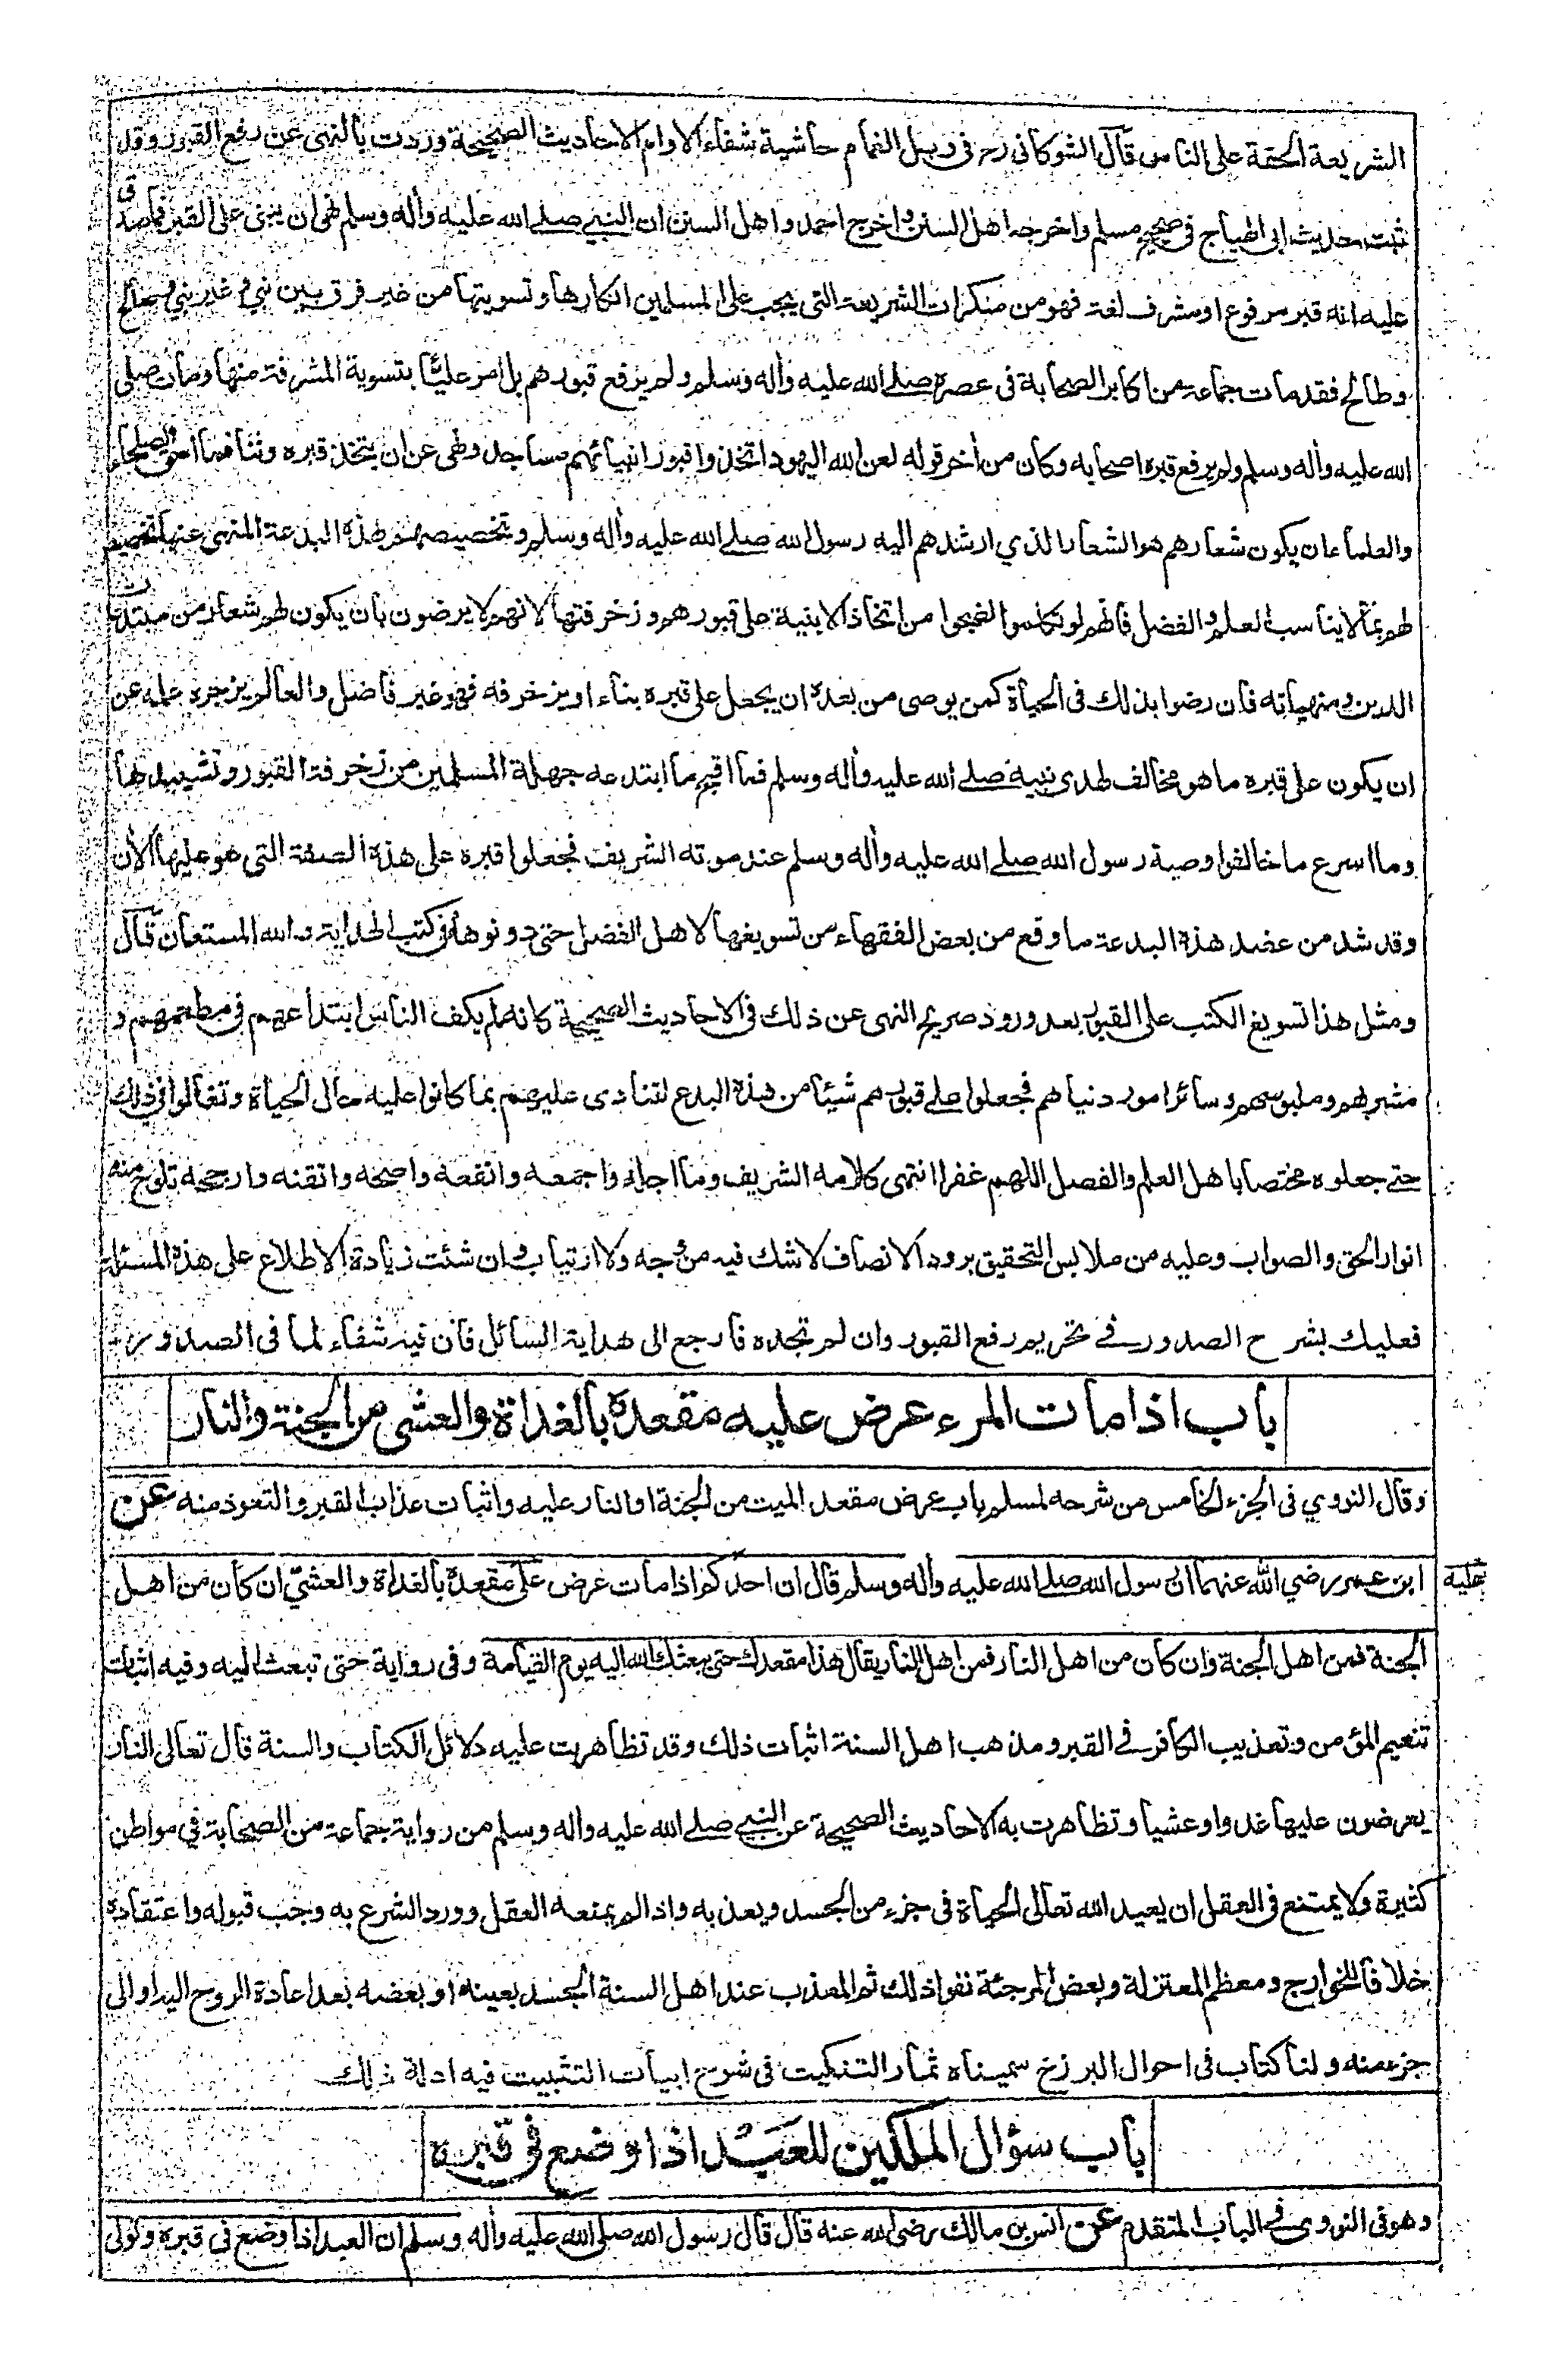 الشريعة الحقة على الناس قال الشوكاني رح في وبل الغمام حاشية شفاء الاوام الاحاديث الصحيحة وردت بالنهي عن رفع القبور وقد
ثبت حديث ابى الهياج في صحيح مسلم واخرجه اهل السنن واخرج احمد واهل السنن ان النبي صلے الله عليه واٰله وسلم نهى ان يبنى على القبر فما صدق
عليه انه قبر مرفوع او مشرف لغة فهو من منكرات الشريعة التي يجب على المسلمين انكارها وتسويتها من غير فرق بين نبي وغير نبي وصالح
وطالح فقد مات جماعة من اكابر الصحابة في عصره صلے الله عليه واٰله وسلم ولم يرفع قبورهم بل امر عليًّا بتسوية المشرفة منها ومات صلى
الله عليه واٰله وسلم ولم يرفع قبره اصحابه وكان من اٰخر قوله لعن الله اليهود اتخذوا قبور انبيائهم مساجد ونهى عن ان يتخذ قبره وثنا فما احق الصلحاء
والعلماء ان يكون شعارهم هو الشعار الذي ارشدهم اليه رسول الله صلے الله عليه واٰله وسلم وتخصيصهم بهذه البدعة المنهي عنها تخصيص
لهم بما لا يناسب العلم والفضل فانهم لو تكلموا لضجوا من اتخاذ الابنية على قبورهم وزخرفتها لانهم لا يرضون بان يكون لهم شعار من مبتدعات
الدين ومنهياته فان رضوا بذلك في الحياة كمن يوصى من بعده ان يجعل على قبره بناء او يزخرفه فهو غير فاضل والعالم يزجره علمه عن
ان يكون على قبره ما هو مخالف لهدى نبيه صلے الله عليه واٰله وسلم فما اقبح ما ابتدعه جهلة المسلمين من زخرفة القبور وتشييدها
وما اسرع ما خالفوا وصية رسول الله صلے الله عليه واٰله وسلم عند موته الشريف فجعلوا قبره على هذه الصفة التي هو عليها الاٰن
وقد شد من عضد هذه البدعة ما وقع من بعض الفقهاء من تسويغها لاهل الفضل حتى دونوها في كتب الهداية والله المستعان قال
ومثل هذا تسويغ الكتب على القبور بعد ورود صريح النهى عن ذلك في الاحاديث الصحيحة كانه لم يكف الناس ابتداعهم في مطعمهم و
مشربهم وملبوسهم وسائر امور دنياهم فجعلوا على قبورهم شيئا من هذه البدع لتنادى عليهم بما كانوا عليه حال الحياة وتغالوا في ذلك
حتى جعلوه مختصا باهل العلم والفضل اللهم غفرا انتهى كلامه الشريف وما اجله واجمعه وانفعه واصحه واتقنه وارجحه تلوح منه
انوار الحق والصواب وعليه من ملابس التحقيق برود الانصاف لا شك فيه من وجه ولا ارتياب وان شئت زيادة الاطلاع على هذه المسئلة
فعليك بشرح الصدور في تحريم رفع القبور وان لم تجده فارجع الى هداية السائل فان فيه شفاء لما في الصدور
باب اذا مات المرء عرض عليه مقعده بالغداة والعشى من الجنة والنار
وقال النووي في الجزء الخامس من شرحه لمسلم باب عرض مقعد الميت من الجنة او النار عليه واثبات عذاب القبر والتعوذ منه عن
ابن عمر رضي الله عنهما ان رسول الله صلے الله عليه واٰله وسلم قال ان احدكم اذا مات عرض على مقعده بالغداة والعشيّ ان كان من اهل
عليه
الجنة فمن اهل الجنة وان كان من اهل النار فمن اهل النار يقال هذا مقعدك حتى يبعثك الله اليه يوم القيامة وفى رواية حتى تبعث اليه وفيه اثبات
تنعيم المؤمن وتعذيب الكافر في القبر ومذهب اهل السنة اثبات ذلك وقد تظاهرت عليه دلائل الكتاب والسنة قال تعالى النار
يعرضون عليها غدوا وعشيا وتظاهرت به الاحاديث الصحيحة عن النبي صلے الله عليه واله وسلم من رواية جماعة من الصحابة في مواطن
كثيرة ولا يمتنع فى العقل ان يعيد الله تعالى الحياة في جزء من الجسد ويعذبه واذا لم يمنعه العقل وورد الشرع به وجب قبوله واعتقاده
خلافا للخوارج ومعظم المعتزلة وبعض المرجئة نفوا ذلك ثم المعذب عند اهل السنة الجسد بعينه او بعضه بعد اعادة الروح اليه او الى
جزء منه ولنا كتاب فى احوال البرزخ سميناه ثمار التنكيت في شرح ابيات التثبيت فيه ادلة ذلك
باب سؤال الملكين للعبد اذا وضع في قبره
وهو في النووى في الباب المتقدم عن انس بن مالك رضى الله عنه قال قال رسول الله صلى الله عليه واٰله وسلم ان العبد اذا وضع في قبره وتولى